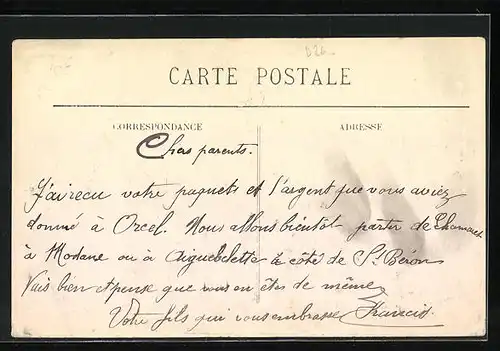 D26
CARTE POSTALE
CORRESPONDANCE
ADRESSE
Chers parents.
J'ai recu votre paquet et l'argent que vous aviez
donné à Orcel. Nous allons bientôt partir de
à Modane ou à Aiguebelette à côté de St Béron
Vais bien et pense que vous en êtes de même
Votre fils qui vous embrasse Francis.